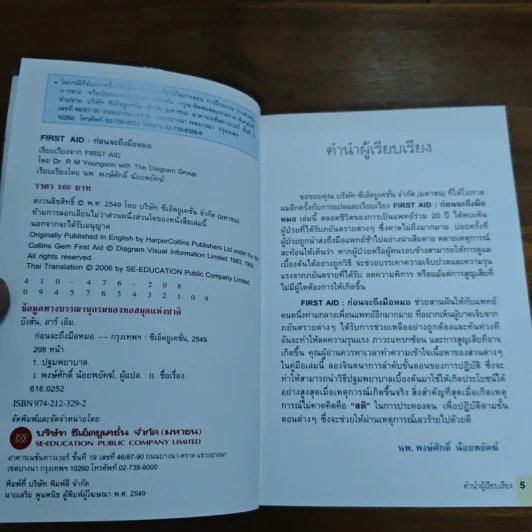 FIRST AID : ก่อนจะถึงมือหมอ
เรียบเรียงจาก FIRST AID
โดย Dr. R M Youngson with The Diagram Group
เรียบเรียงโดย นพ. พงษ์ศักดิ์ น้อยพยัคฆ์
ราคา 160 บาท
สงวนลิขสิทธิ์ © พ.ศ. 2549 โดย บริษัท ซีเอ็ดยูเคชั่น จำกัด (มหาชน)
ห้ามการลอกเลียนไม่ว่าส่วนหนึ่งส่วนใดของหนังสือเล่มนี้
นอกจากจะได้รับอนุญาต
Originally Published in English by HarperCollins Publishers Ltd under the
Collins Gem First Aid © Diagram Visual Information Limited 1993,
All rights reserved.
Thai Translation © 2006 by SE-EDUCATION Public Company Limited
4 1 0 - 4 7 6 - 2 0 8
0 9 4 5 7 6 5 4 3 2 1 0 9
ข้อมูลทางบรรณานุกรมของหอสมุดแห่งชาติ
ยังสัน, อาร์ เอ็ม.
ก่อนจะถึงมือหมอ. -- กรุงเทพฯ : ซีเอ็ดยูเคชั่น, 2549.
208 หน้า.
1. ปฐมพยาบาล.
I. พงษ์ศักดิ์ น้อยพยัคฆ์, ผู้แปล. II. ชื่อเรื่อง.
616.0252
ISBN 974-212-329-2
จัดพิมพ์และจัดจำหน่ายโดย
บริษัท ซีเอ็ดยูเคชั่น จำกัด (มหาชน)
SE-EDUCATION PUBLIC COMPANY LIMITED
อาคารเนชั่นทาวเวอร์ ชั้นที่ 19 เลขที่ 46/87-90 ถนนบางนา-ตราด แขวงบางนา
เขตบางนา กรุงเทพฯ 10260 โทรศัพท์ 02-739-8000
พิมพ์ที่ บริษัท พิมพ์ดี จำกัด
นายเสริม พูนพนิช ผู้พิมพ์ผู้โฆษณา พ.ศ. 2549
คำนำผู้เรียบเรียง
ขอขอบคุณ บริษัท ซีเอ็ดยูเคชั่น จำกัด (มหาชน) ที่ให้โอกาส
ผมอีกครั้งกับการแปลและเรียบเรียง FIRST AID : ก่อนจะถึงมือ
หมอ เล่มนี้ ตลอดชีวิตของการเป็นแพทย์ร่วม 20 ปี ได้พบเห็น
ผู้ป่วยที่ได้รับภยันตรายต่างๆ ซึ่งคาดไม่ถึงมากมาย บ่อยครั้งที่
ผู้ป่วยถูกนำส่งถึงมือแพทย์ช้าไปอย่างน่าเสียดาย หลายเหตุการณ์
สะท้อนให้เห็นว่า หากผู้ป่วยหรือผู้คนรอบข้างสามารถให้การดูแล
เบื้องต้นได้อย่างถูกวิธี จะช่วยบรรเทาความเจ็บปวดและความรุน
แรงจากภยันตรายที่ได้รับ ลดความพิการ หรือแม้แต่การสูญเสียที่
ไม่มีผู้ใดต้องการให้เกิดขึ้น
FIRST AID : ก่อนจะถึงมือหมอ ช่วยสานฝันให้กับแพทย์
คนหนึ่งท่ามกลางเพื่อนแพทย์อีกมากมาย ที่อยากเห็นผู้บาดเจ็บจาก
ภยันตรายต่างๆ ได้รับการช่วยเหลืออย่างถูกต้องและทันท่วงที
อันจะทำให้ลดความรุนแรง ภาวะแทรกซ้อน และการสูญเสียที่อาจ
เกิดขึ้น คุณผู้อ่านควรหาเวลาทำความเข้าใจเนื้อหาของส่วนต่างๆ
ในคู่มือเล่มนี้ ลองจินตนาการลำดับขั้นตอนของการปฏิบัติ ซึ่งจะ
ทำให้สามารถนำวิธีปฐมพยาบาลเบื้องต้นมาใช้ให้เกิดประโยชน์ได้
อย่างสูงสุดเมื่อเหตุการณ์เกิดขึ้นจริง สิ่งสำคัญที่สุดเมื่อเกิดเหตุ
การณ์ไม่คาดคิดคือ "สติ" ในการประคองตน เพื่อปฏิบัติตามขั้น
ตอนต่างๆ ซึ่งจะช่วยให้ผ่านเหตุการณ์เลวร้ายไปด้วยดี
นพ. พงษ์ศักดิ์ น้อยพยัคฆ์
คำนำผู้เรียบเรียง 5